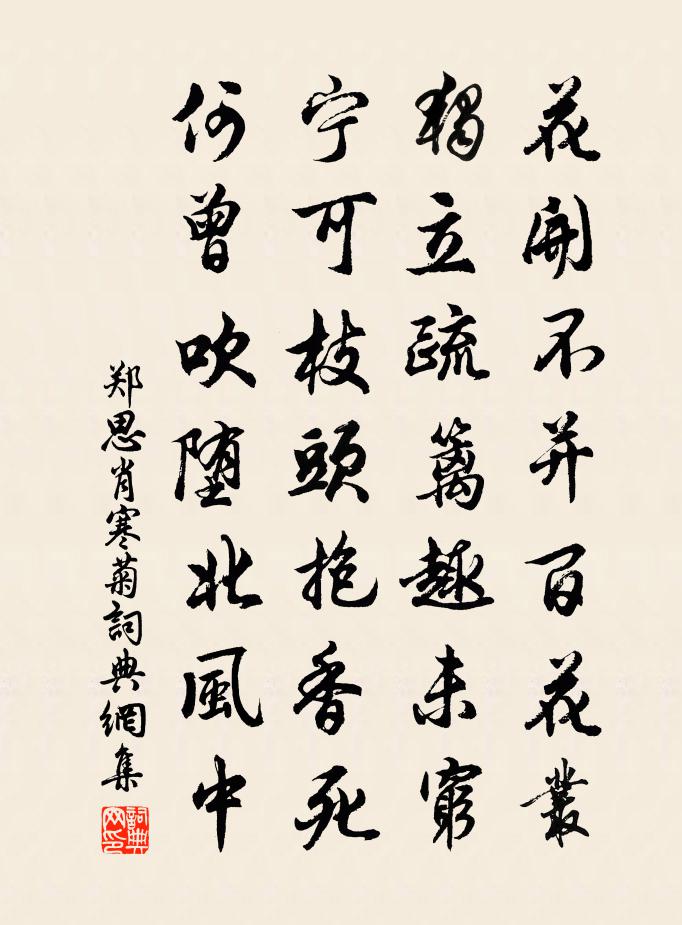 花開不并百花叢
獨立疏籬趣未窮
宁可枝頭抱香死
何曾吹堕北風中
郑思肖寒菊詞典網集
詞典網印